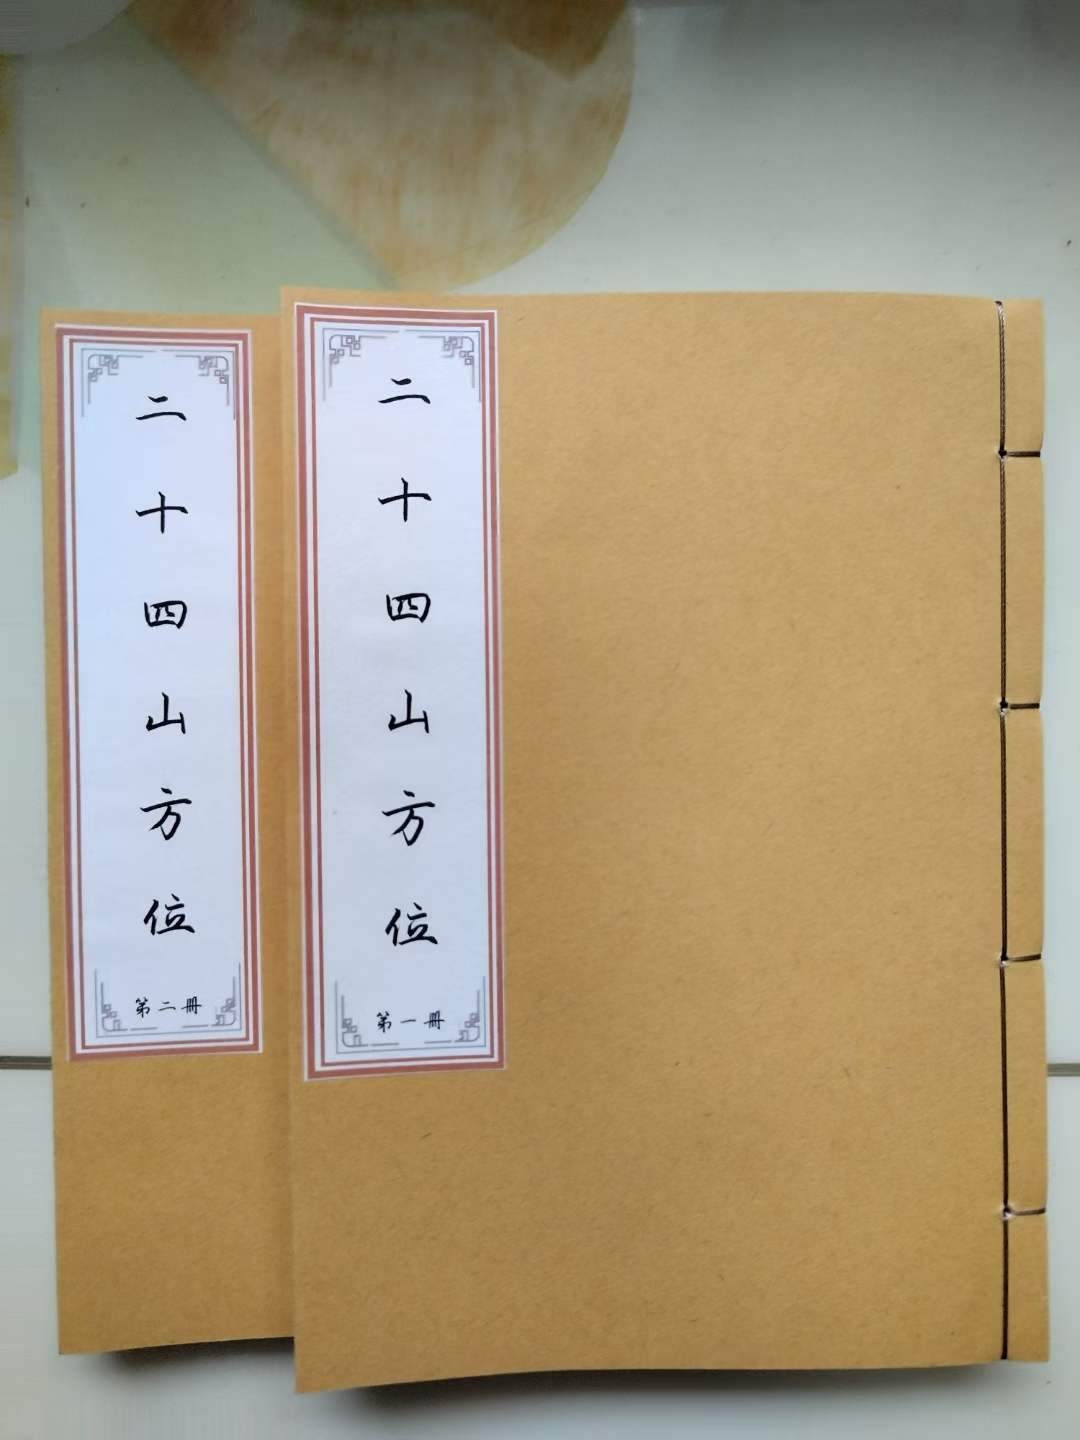 二十四山方位
第二冊
二十四山方位
第一冊